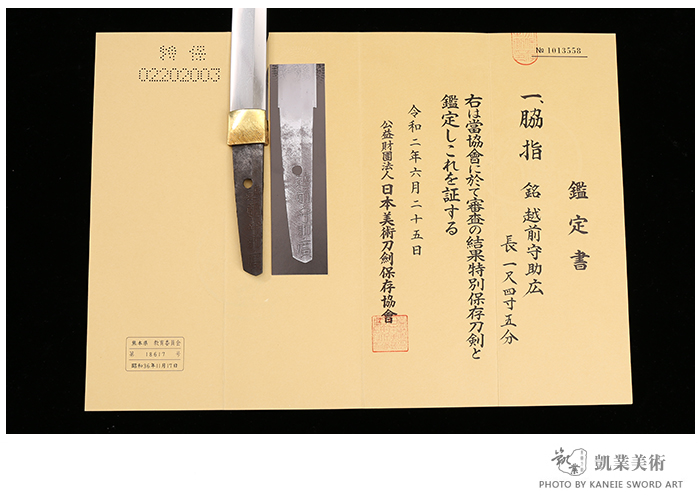 鑑定書
一、脇指 銘 越前守助広
長 一尺四寸五分
右は當協會に於て審査の結果特別保存刀剣と
鑑定しこれを証する
令和二年六月二十五日
公益財團法人 日本美術刀劍保存協會
№ 1013558
特 保
02202003
熊本県 教育委員会
第 18617 号
昭和36年11月17日
凱業美術
PHOTO BY KANEIE SWORD ART